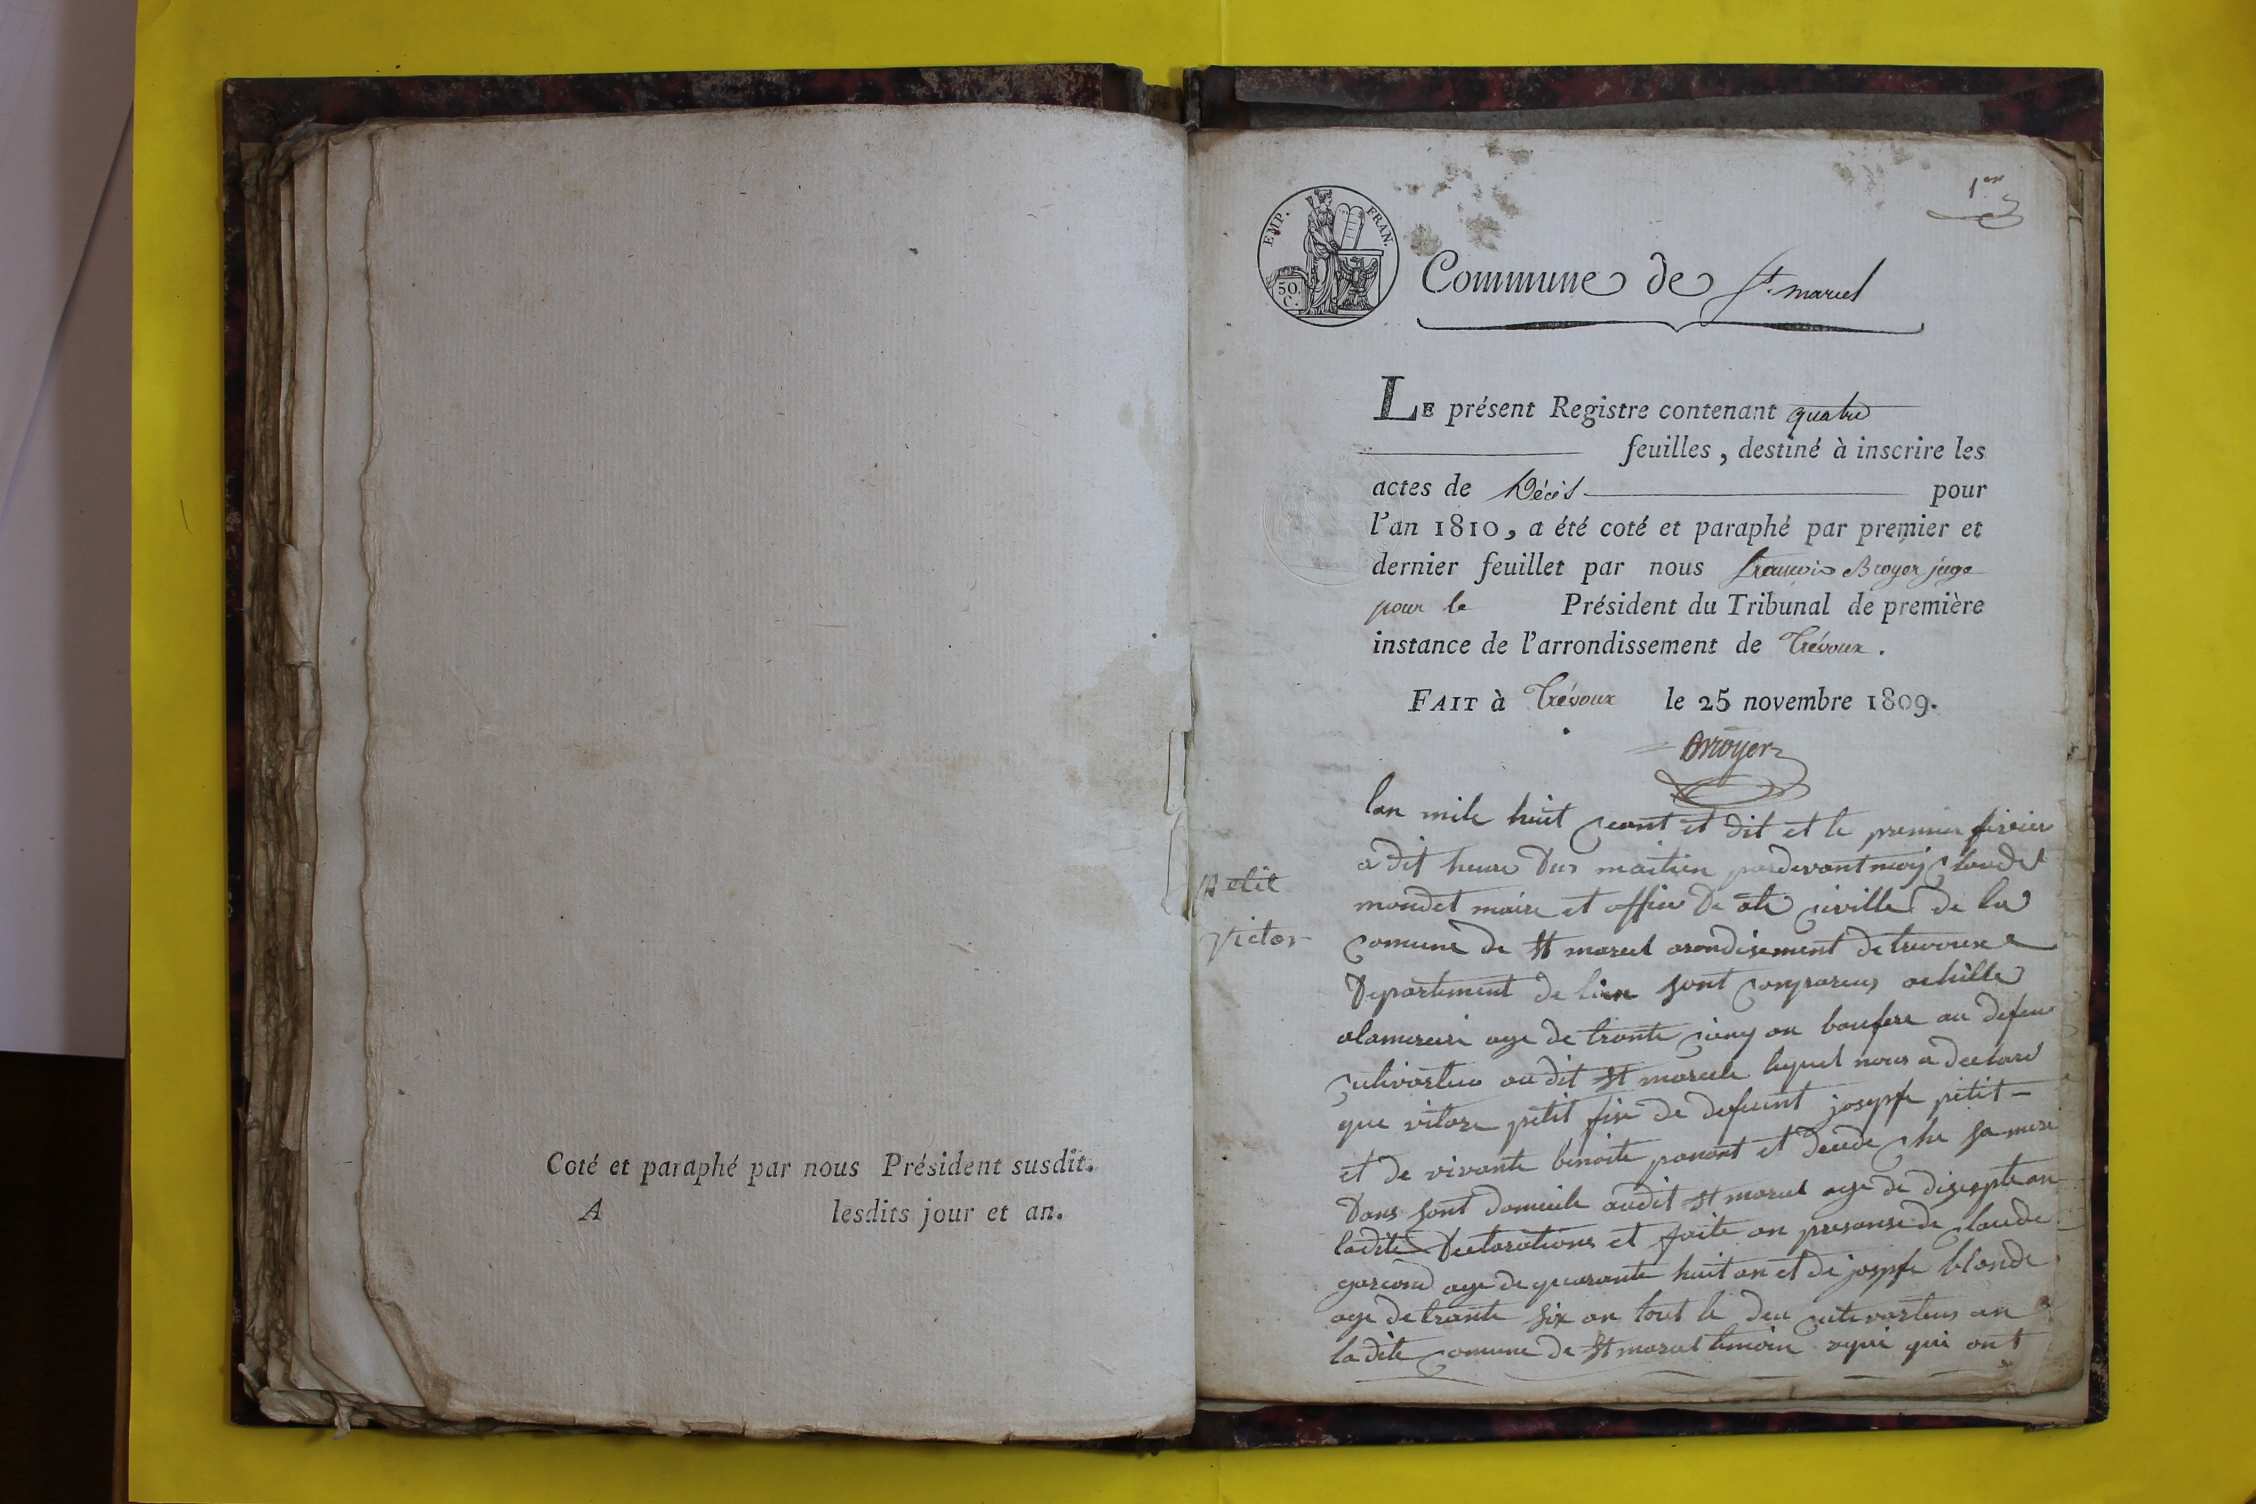 Coté et paraphé par nous Président susdit.
A lesdits jour et an.
1er
EMP. FRAN.
50.
C.
Commune de St. marcel
LE présent Registre contenant quatre
feuilles, destiné à inscrire les
actes de Décès pour
l'an 1810, a été coté et paraphé par premier et
dernier feuillet par nous francois Broyer juge
pour le Président du Tribunal de première
instance de l'arrondissement de Trévoux.
FAIT à Trévoux le 25 novembre 1809.
Broyer
Petit
Victor
lan mile huit ceant et dit et le premier fevrier
a dit heure dus maitien pardevant moy claude
moudet maire et officie de ate civille de la
comune de st marcel arondisement de trevoux
Departement de lien sont comparus achille
age de trante cinq an baufere au defen
cultivarteur au dit st marcele lequel nous a declaré
que vitore petit fise de defeunt josepfe petit
et de vivante benoite panant et decede che sa mere
dans sont domicile audit st marcel age de disepte an
ladite declarations et faite an presanse de claude
garcond age de quarante huit an et de jospfe blonde
age de trante six an tout le deu cultivarteus an
la dite comune de st marcel temoin qui ont